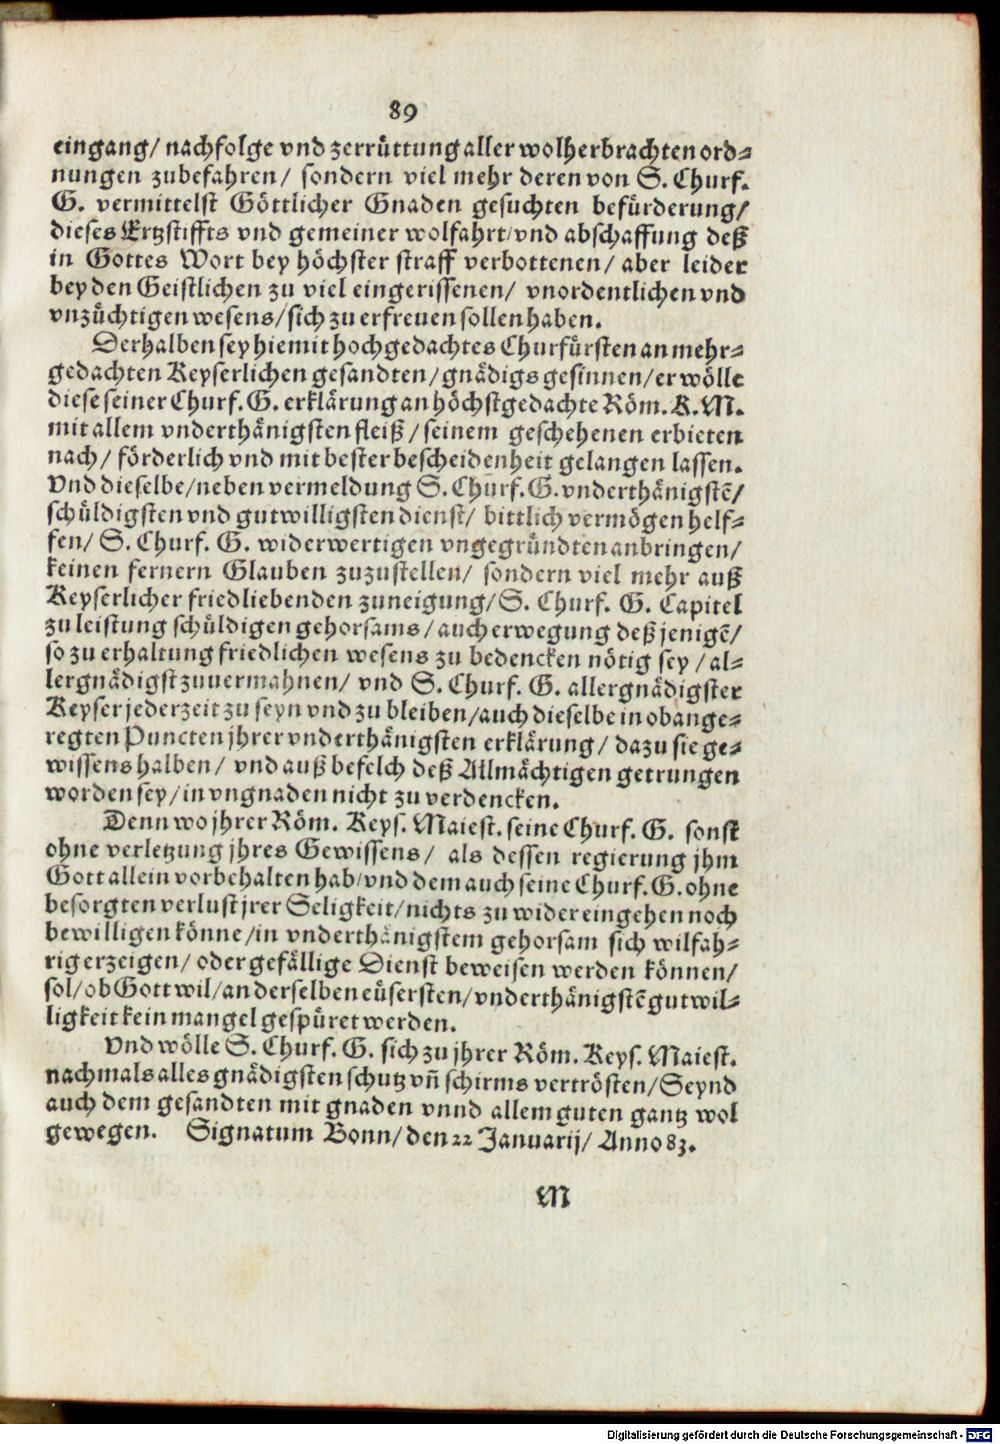 89
eingang/ nachfolge vnd zerrüttung aller wolherbrachten ord-
nungen zubefahren/ sondern viel mehr deren von S. Churf.
G. vermittelst Göttlicher Gnaden gesuchten befürderung/
dieses Ertzstiffts vnd gemeiner wolfahrt/vnd abschaffung deß
in Gottes Wort bey höchster straff verbottenen/ aber leider
bey den Geistlichen zu viel eingerissenen/ vnordentlichen vnd
vnzüchtigen wesens/sich zu erfreuen sollen haben.
Derhalben sey hiemit hochgedachtes Churfürsten an mehr-
gedachten Keyserlichen gesandten/gnädigs gesinnen/er wölle
diese seiner Churf. G. erklärung an höchstgedachte Röm. K. M.
mit allem vnderthänigsten fleiß/seinem geschehenen erbieten
nach/ förderlich vnd mit bester bescheidenheit gelangen lassen.
Vnd dieselbe/neben vermeldung S. Churf. G. vnderthänigstẽ/
schüldigsten vnd gutwilligsten dienst/ bittlich vermögen helf-
fen/ S. Churf. G. widerwertigen vngegründten anbringen/
keinen fernern Glauben zuzustellen/ sondern viel mehr auß
Keyserlicher friedliebenden zuneigung/S. Churf. G. Capitel
zu leistung schüldigen gehorsams/auch erwegung deßjenigẽ/
so zu erhaltung friedlichen wesens zu bedencken nötig sey/al-
lergnädigst zuuermahnen/ vnd S. Churf. G. allergnädigster
Keyser jederzeit zu seyn vnd zu bleiben/auch dieselbe in obange-
regten Puncten jhrer vnderthänigsten erklärung/ dazu sie ge-
wissens halben/ vnd auß befelch deß Allmächtigen getrungen
worden sey/in vngnaden nicht zu verdencken.
Denn wo jhrer Röm. Keys. Maiest. seine Churf. G. sonst
ohne verletzung jhres Gewissens/ als dessen regierung jhm
Gott allein vorbehalten hab/vnd dem auch seine Churf. G. ohne
besorgten verlust jrer Seligkeit/nichts zu wider eingehen noch
bewilligen könne/in vnderthänigstem gehorsam sich wilfäh-
rig erzeigen/ oder gefällige Dienst beweisen werden können/
sol/ob Gott wil/an derselben eüsersten/vnderthänigstẽ gutwil-
ligkeit kein mangel gespüret werden.
Vnd wölle S. Churf. G. sich zu jhrer Röm. Keys. Maiest.
nachmals alles gnädigsten schutz vñ schirms vertrösten/Seynd
auch dem gesandten mit gnaden vnnd allem guten gantz wol
gewegen. Signatum Bonn/ den 22 Januarij/ Anno 83.
M
Digitalisierung gefördert durch die Deutsche Forschungsgemeinschaft - DFG